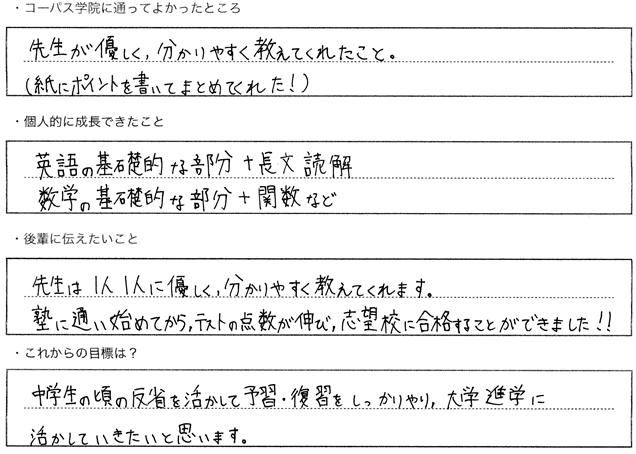 ・コーパス学院に通ってよかったところ
先生が優しく,分かりやすく教えてくれたこと。
(紙にポイントを書いてまとめてくれた!)
・個人的に成長できたこと
英語の基礎的な部分+長文読解
数学の基礎的な部分+関数など
・後輩に伝えたいこと
先生は1人1人に優しく,分かりやすく教えてくれます。
塾に通い始めてから,テストの点数が伸び,志望校に合格することができました!!
・これからの目標は?
中学生の頃の反省を活かして予習・復習をしっかりやり,大学進学に
活かしていきたいと思います。